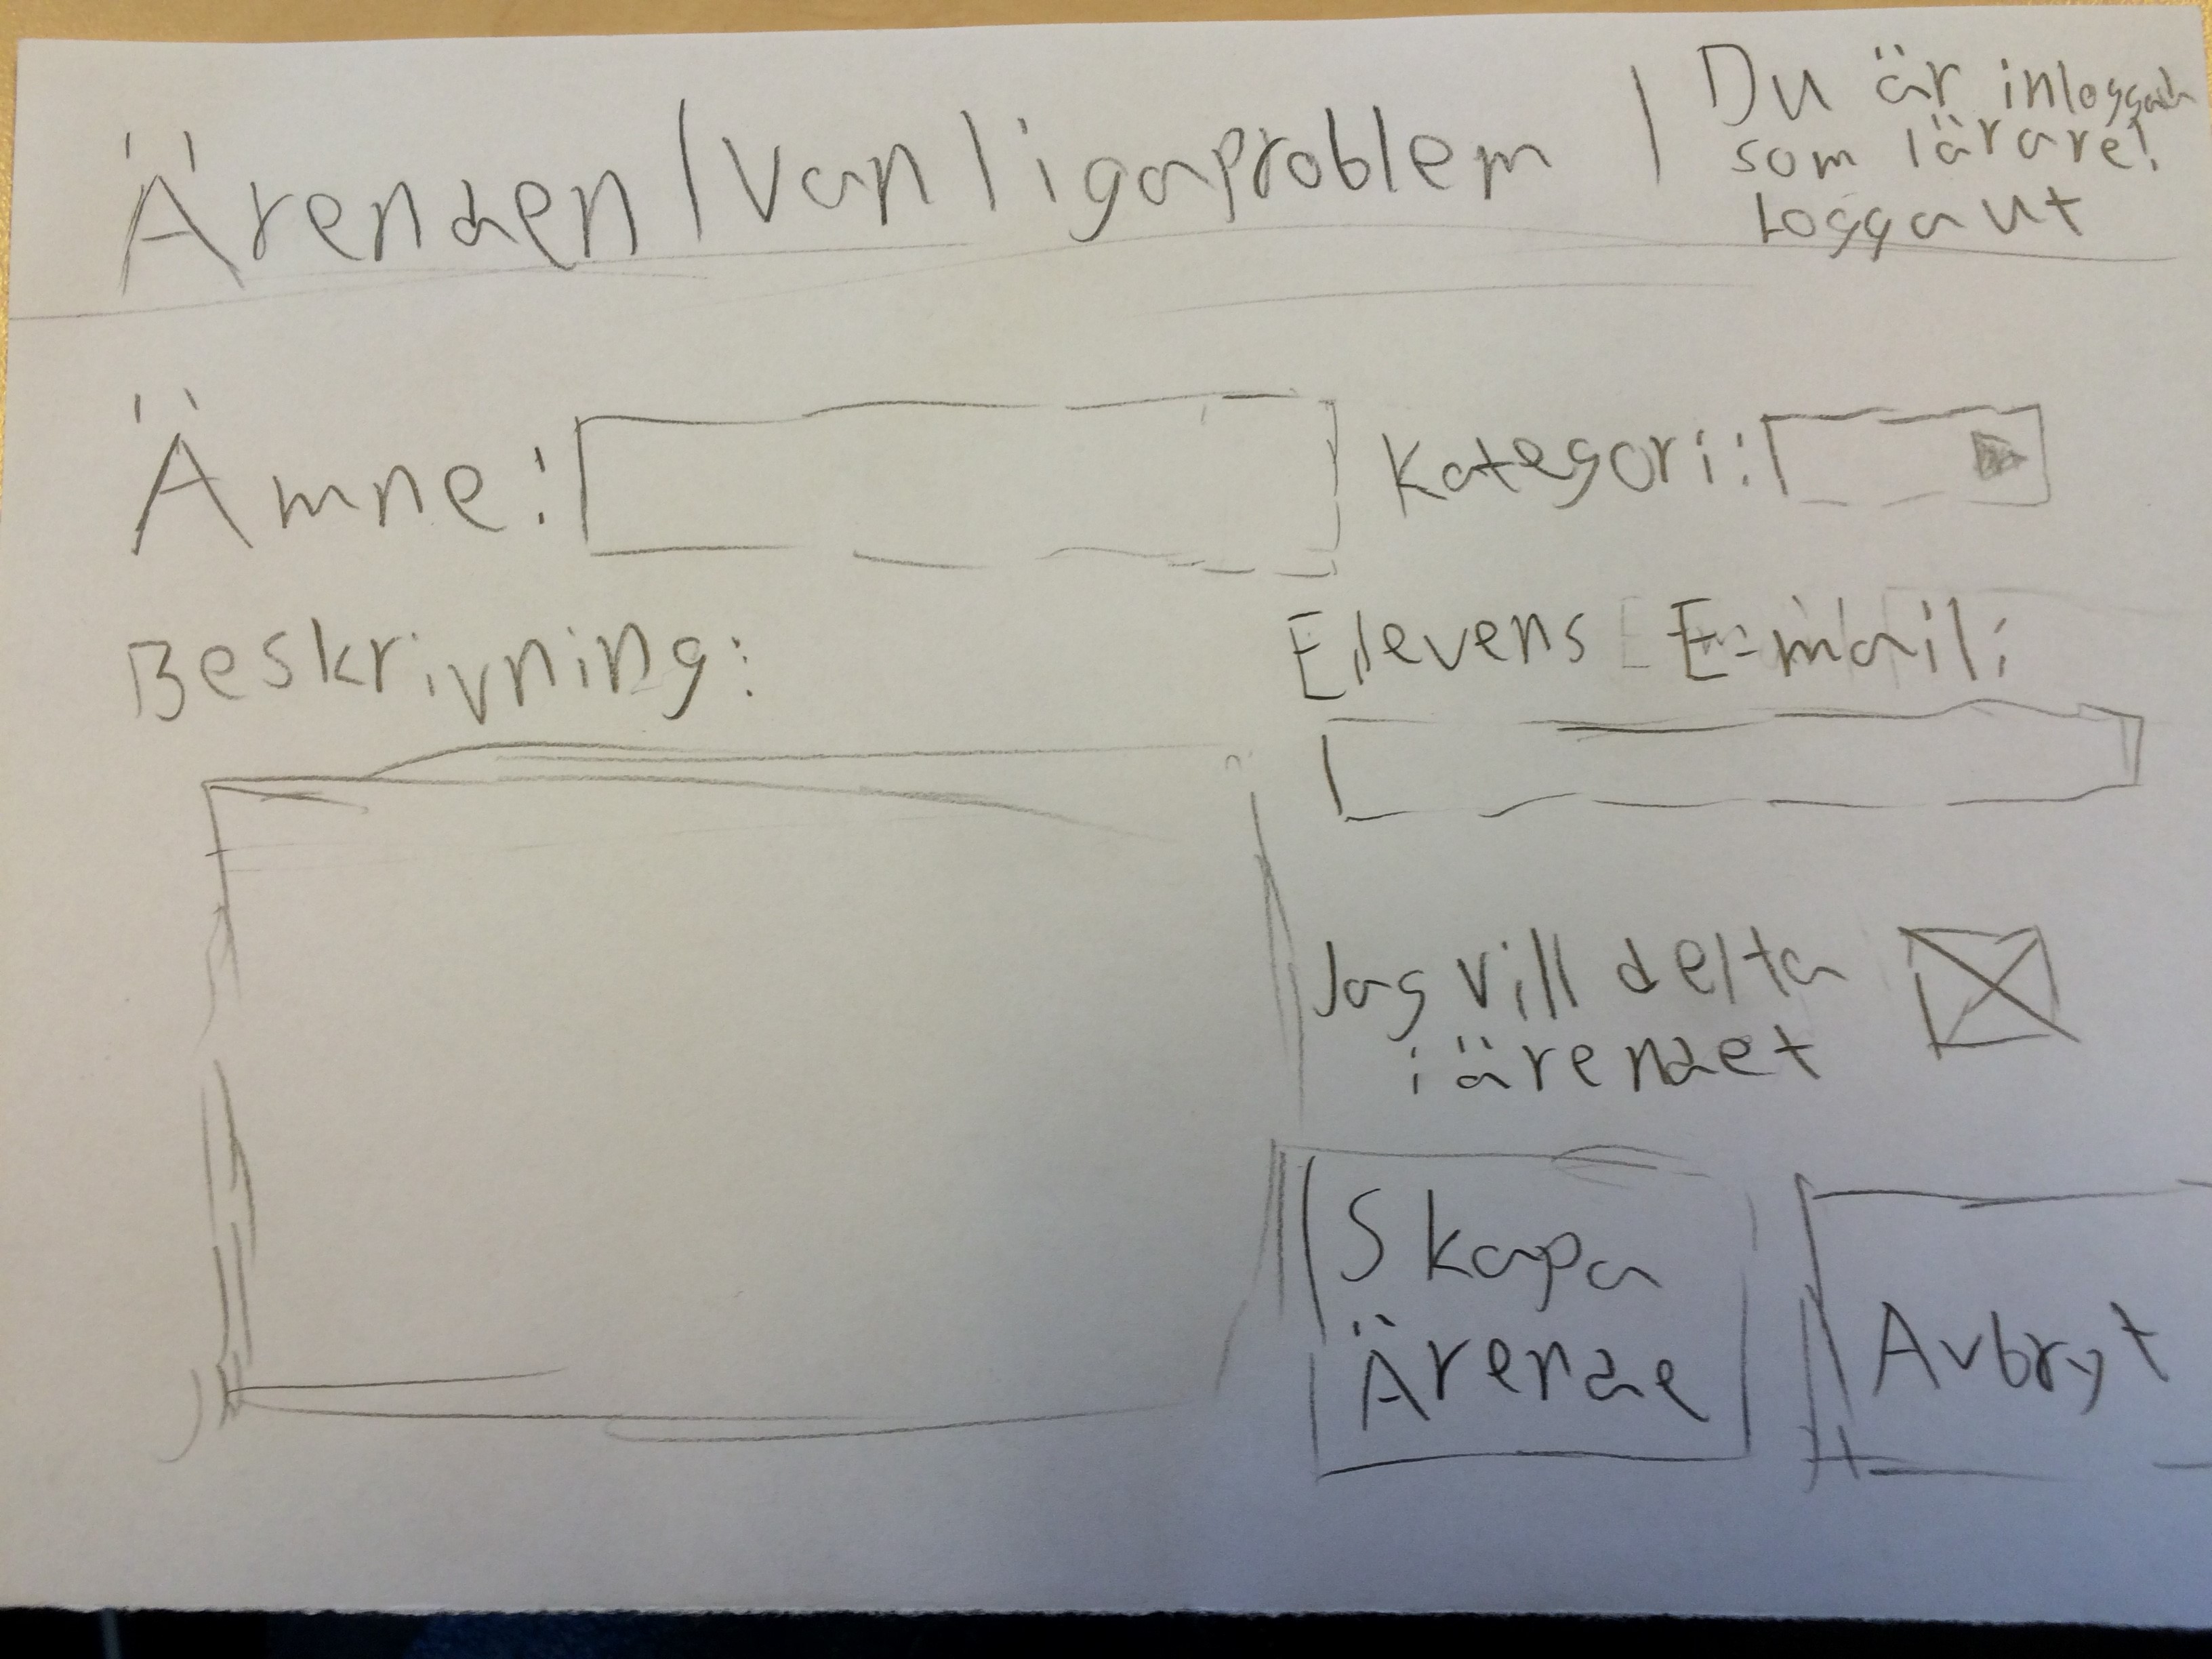 Ärenden | Vanligaproblem | Du är inloggad
som lärare!
Logga ut
Ämne: Kategori:
Beskrivning: Elevens E-mail:
Jag vill delta
i ärendet
Skapa
Ärende
Avbryt